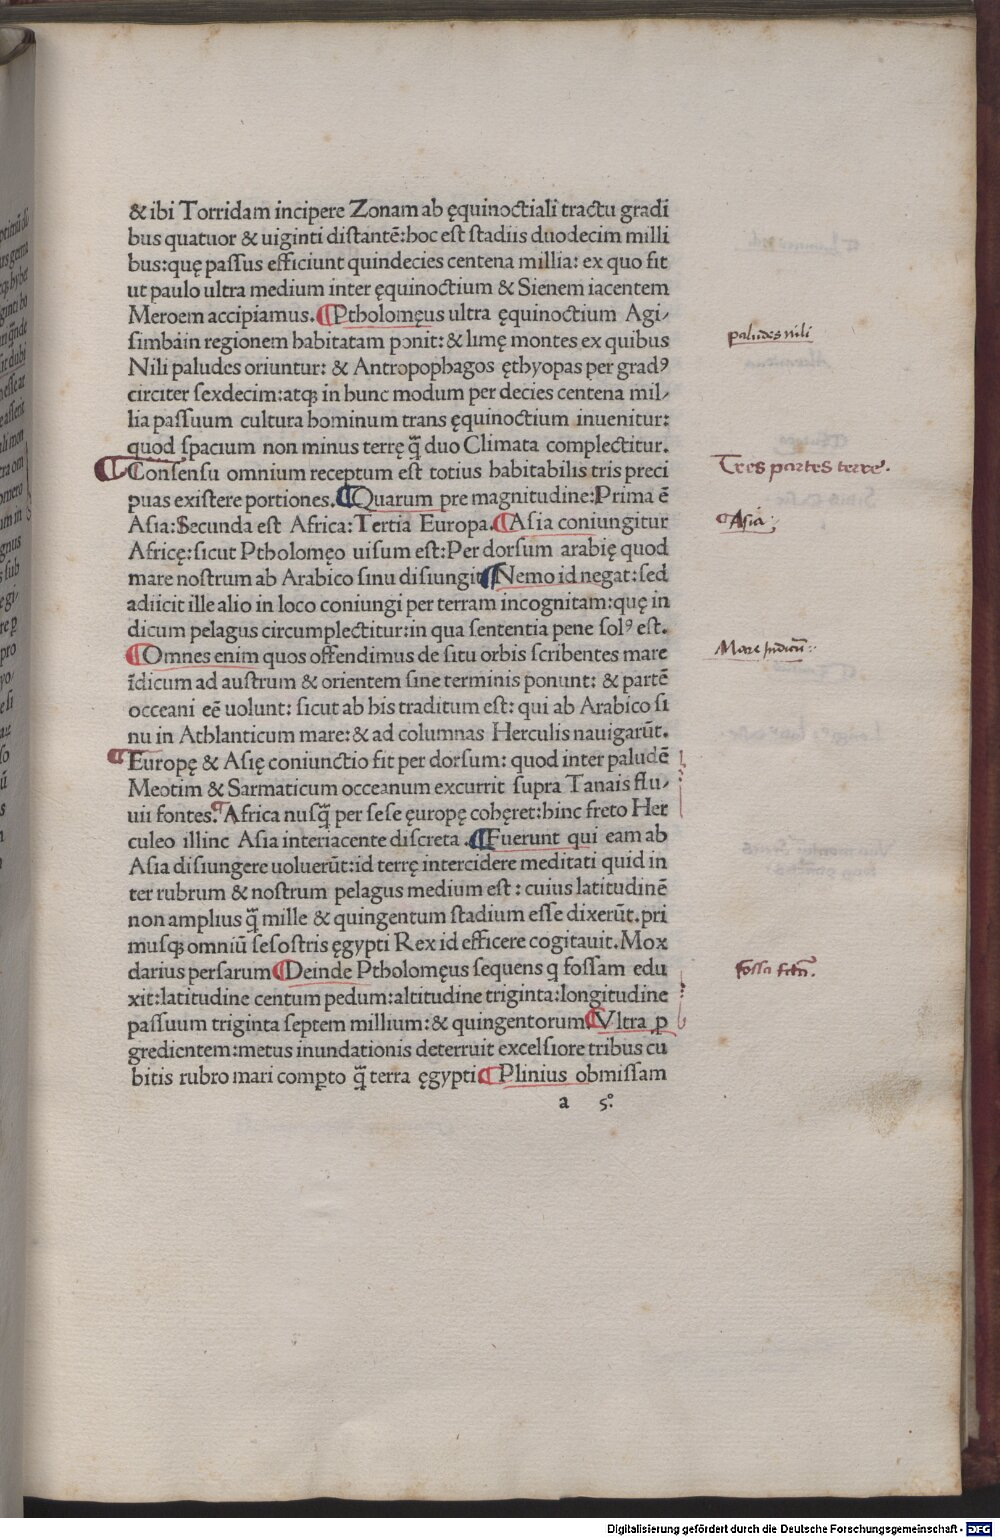 & ibi Torridam incipere Zonam ab ęquinoctiali tractu gradi
bus quatuor & uiginti distantē:hoc est stadiis duodecim milli
bus:quę passus efficiunt quindecies centena millia: ex quo fit
ut paulo ultra medium inter ęquinoctium & Sienem iacentem
Meroem accipiamus. ¶Ptholomęus ultra ęquinoctium Agi-
simbāin regionem habitatam ponit: & lunę montes ex quibus
Nili paludes oriuntur: & Antropophagos ęthyopas per gradꝰ
circiter sexdecim:atqꝫ in hunc modum per decies centena mil-
lia passuum cultura hominum trans ęquinoctium inuenitur:
quod spacium non minus terrę q̄̃ duo Climata complectitur.
¶Consensu omnium receptum est totius habitabilis tris preci
puas existere portiones. ¶Quarum pre magnitudine:Prima ē
Asia:Secunda est Africa:Tertia Europa. ¶Asia coniungitur
Africę:sicut Ptholomęo uisum est:Per dorsum arabię quod
mare nostrum ab Arabico sinu disiungit ¶Nemo id negat:sed
adiicit ille alio in loco coniungi per terram incognitam:quę in
dicum pelagus circumplectitur:in qua sententia pene solꝰ est.
¶Omnes enim quos offendimus de situ orbis scribentes mare
īdicum ad austrum & orientem sine terminis ponunt: & partē
occeani eē uolunt: sicut ab his traditum est: qui ab Arabico si
nu in Athlanticum mare: & ad columnas Herculis nauigarūt.
¶Europę & Asię coniunctio fit per dorsum: quod inter paludē
Meotim & Sarmaticum occeanum excurrit supra Tanais flu-
uii fontes. ¶Africa nusq̄̃ per sese ęuropę cohęret:hinc freto Her
culeo illinc Asia interiacente discreta. ¶Fuerunt qui eam ab
Asia disiungere uoluerūt:id terrę intercidere meditati quid in
ter rubrum & nostrum pelagus medium est: cuius latitudinē
non amplius q̄̃ mille & quingentum stadium esse dixerūt.pri
musqꝫ omniū sesostris ęgypti Rex id efficere cogitauit. Mox
darius persarum ¶Deinde Ptholomęus sequens q fossam edu
xit:latitudine centum pedum:altitudine triginta:longitudine
passuum triginta septem millium: & quingentorum ¶Vltra ꝓ
gredientem:metus inundationis deterruit excelsiore tribus cu
bitis rubro mari comꝑto q̄̃ terra ęgypti ¶Plinius obmissam
a 5
paludes nili
Tres partes terre.
¶Asia
Mare Indicū